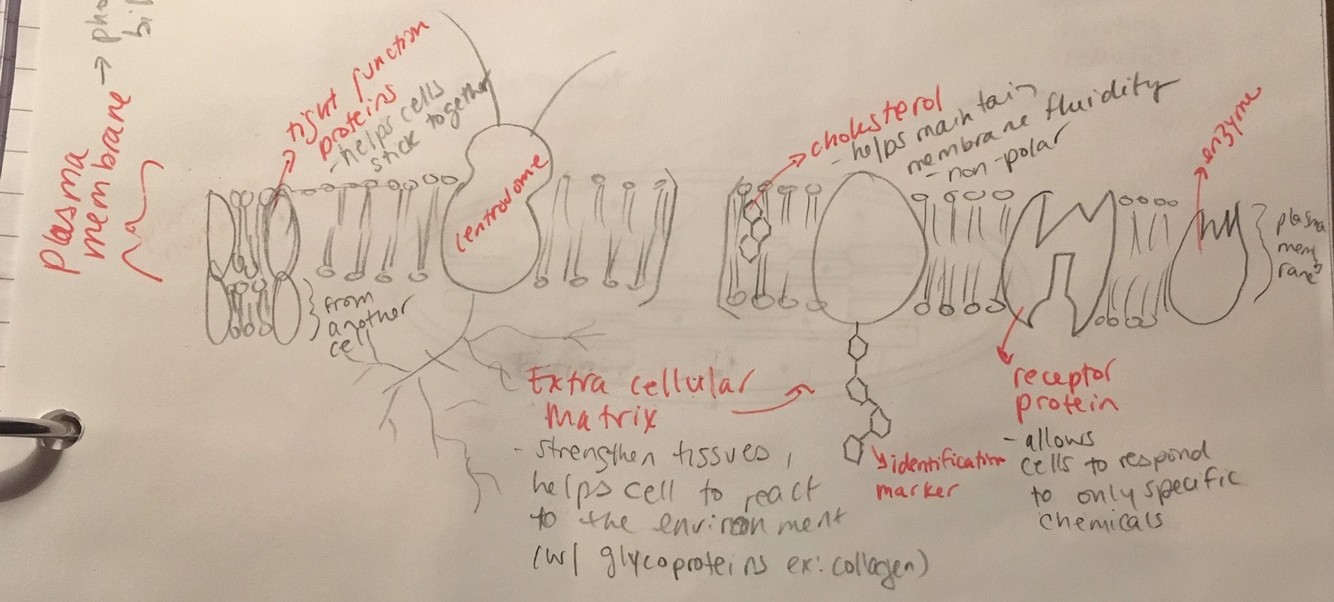 Plasma
membrane → pho
bil
tight function
proteins
- helps cells
stick together
centrosome
cholesterol
- helps maintain
membrane fluidity
- non-polar
enzyme
plasma
mem
rane?
from
another
cell
Extra cellular
Matrix
- strengthen tissues,
helps cell to react
to the environment
(w/ glycoproteins ex: collagen)
identification
marker
receptor
protein
- allows
cells to respond
to only specific
chemicals